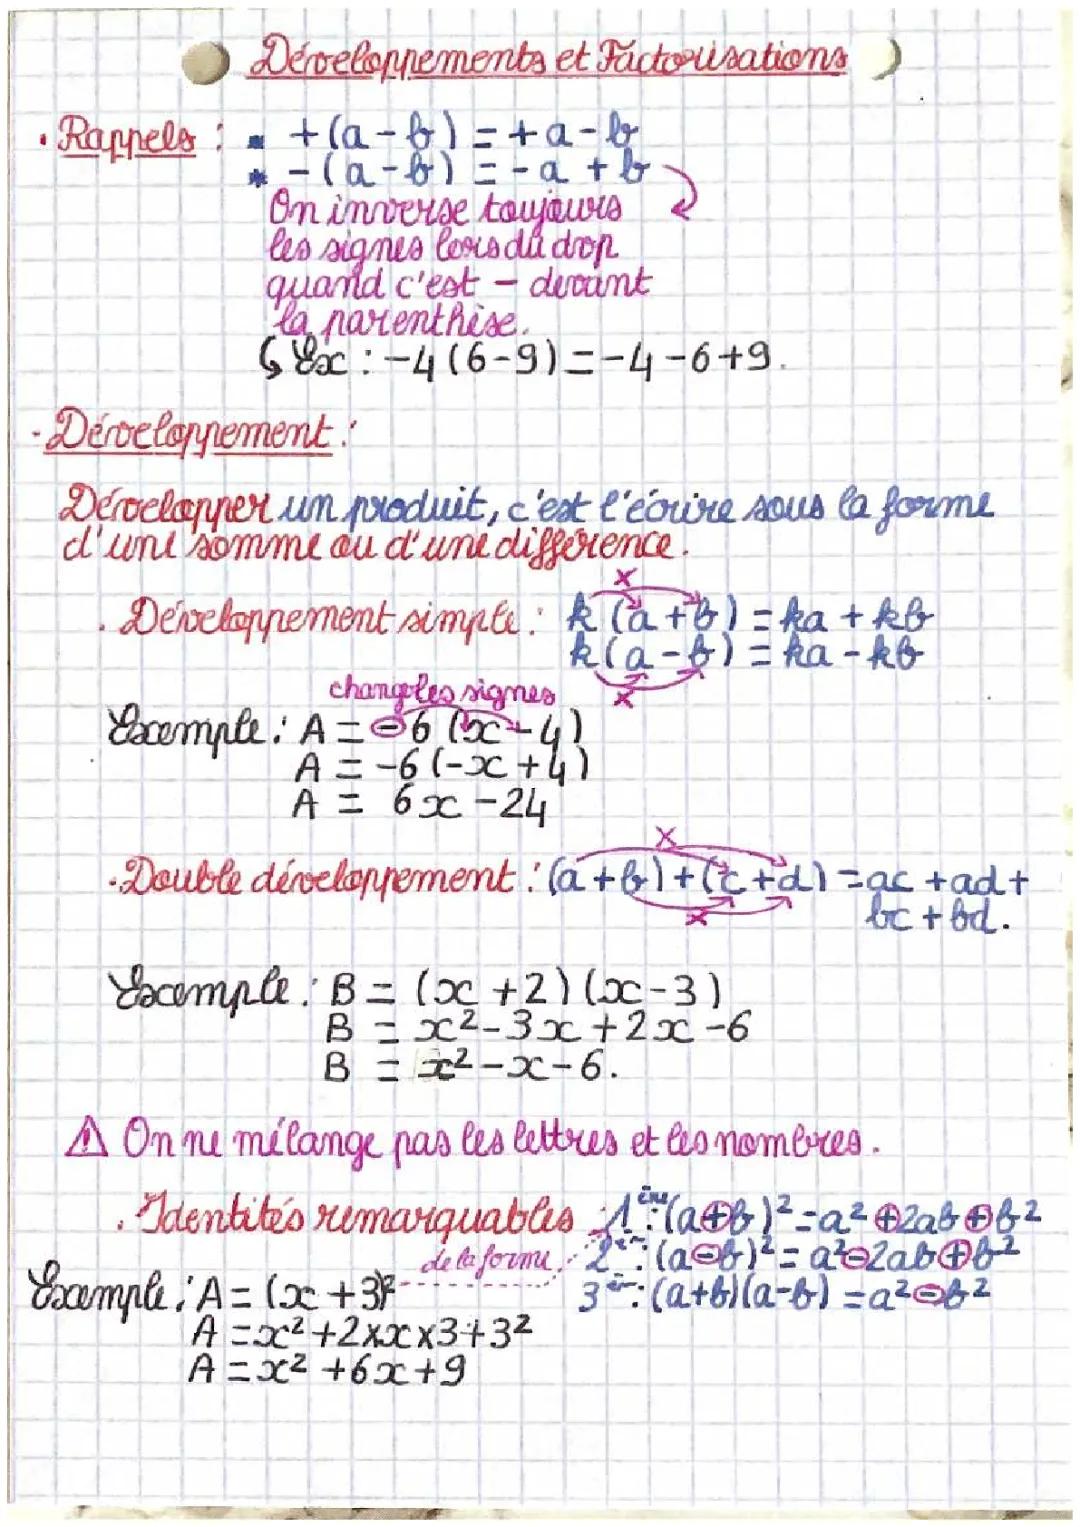 Développements et Factorisations
• Rappels : * +(a-b) = +a-b
* -(a-b) = -a+b
On inverse toujours
les signes lors du drop
quand c'est - devant
la parenthèse.
↳ Ex : -4(6-9) = -4-6+9.
- Développement :
Développer un produit, c'est l'écrire sous la forme
d'une somme ou d'une différence.
x
. Développement simple : k(a+b) = ka+kb
k(a-b) = ka-kb
x
change les signes
Exemple : A = -6(x-4)
A = -6(-x+4)
A = 6x-24
x
. Double développement : (a+b)+(c+d) = ac+ad+
bc+bd.
x
Exemple : B = (x+2)(x-3)
B = x²-3x+2x-6
B = x²-x-6.
⚠ On ne mélange pas les lettres et les nombres.
. Identités remarquables 1ère : (a+b)² = a²+2ab+b²
de la forme 2em : (a-b)² = a²-2ab+b²
Exemple : A = (x+3)² 3em : (a+b)(a-b) = a²-b²
A = x²+2×x×3+3²
A = x²+6x+9